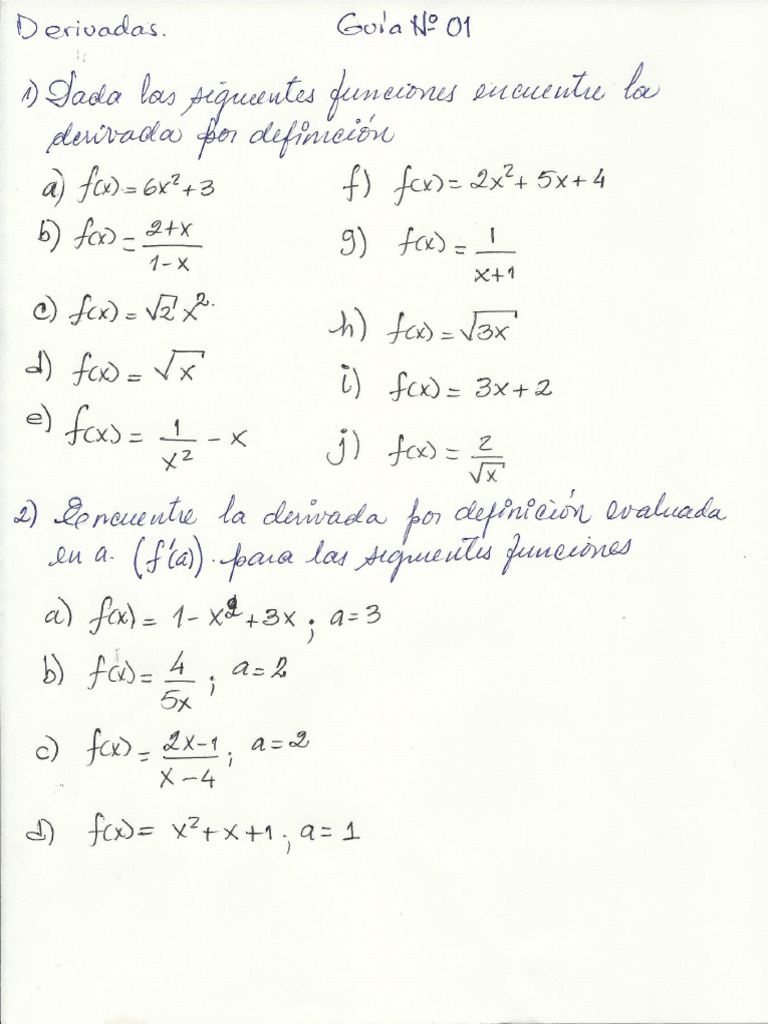 Derivadas. Guía Nº 01
1) Dada las siguientes funciones encuentre la
derivada por definición
a) f(x) = 6x² + 3
f) f(x) = 2x² + 5x + 4
b) f(x) = (2+x)/(1-x)
g) f(x) = 1/(x+1)
c) f(x) = √2 x²
h) f(x) = √3x
d) f(x) = √x
i) f(x) = 3x + 2
e) f(x) = 1/x² - x
j) f(x) = 2/√x
2) Encuentre la derivada por definición evaluada
en a. (f'(a)). para las siguientes funciones
a) f(x) = 1 - x² + 3x ; a = 3
b) f(x) = 4/5x ; a = 2
c) f(x) = (2x-1)/(x-4) ; a = 2
d) f(x) = x² + x + 1 ; a = 1